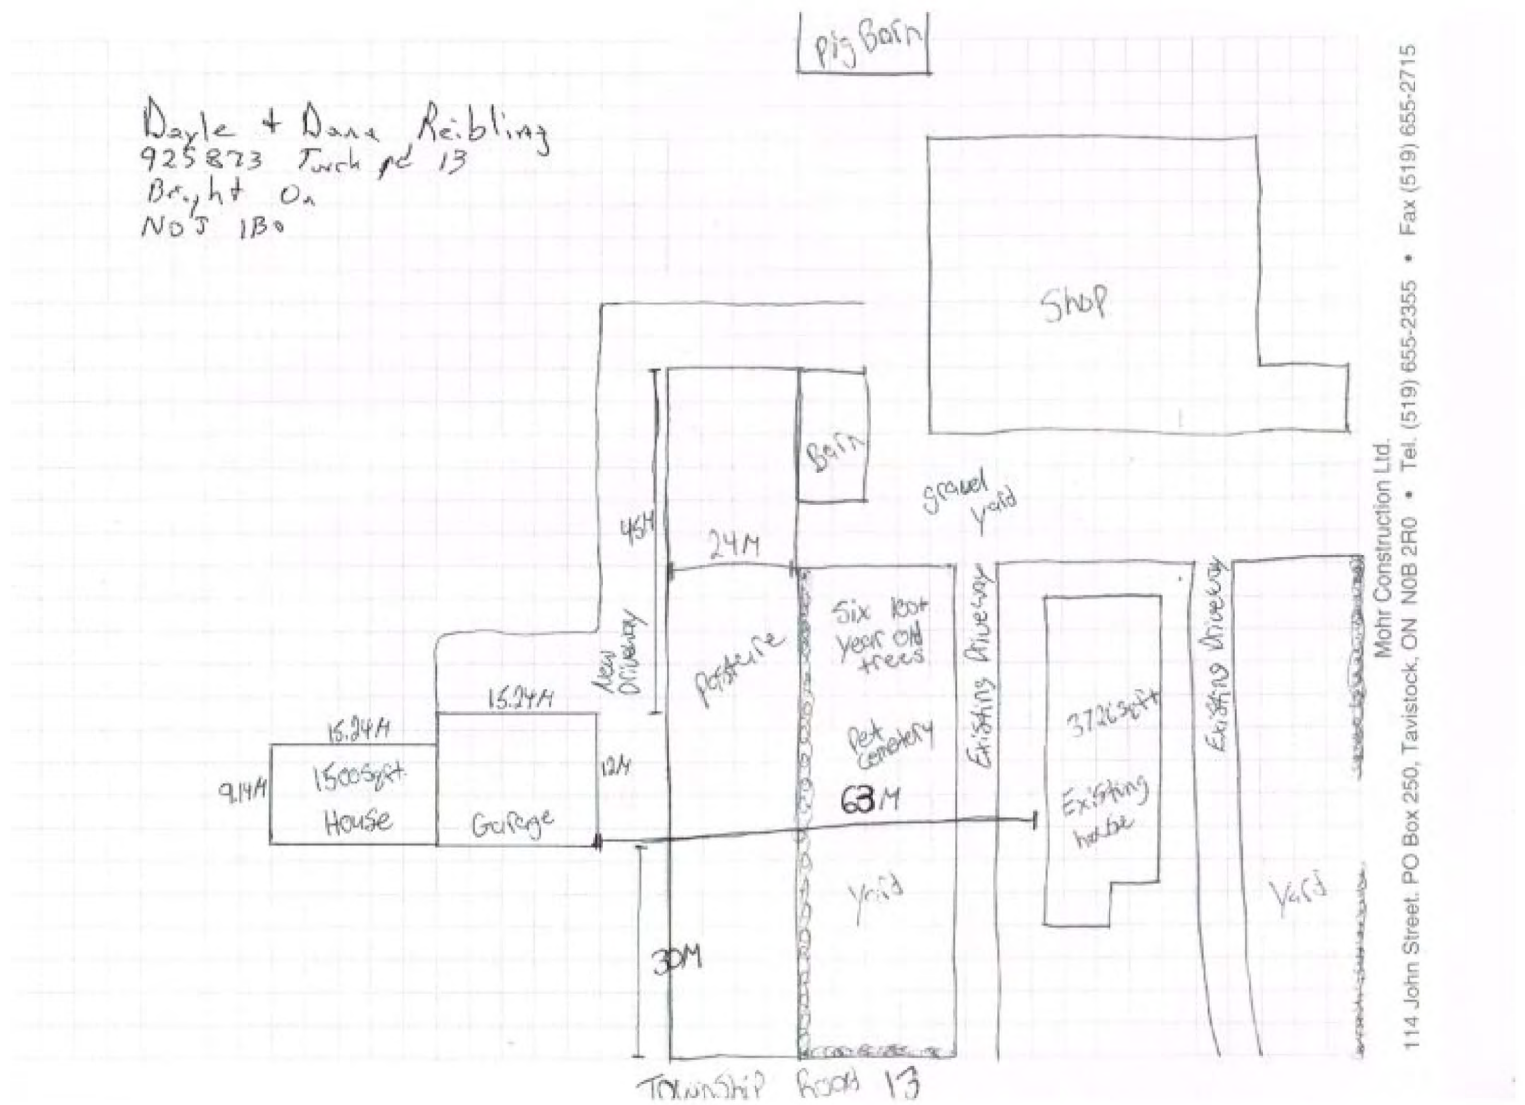 Pig Barn
Dayle + Dana Reibling
925873 Twsh rd 13
Bright On
N0J 1B0
Shop
Barn
gravel
yard
45M
24M
New
Driveway
Pasture
Six 100+
year old
trees
Pet
Cemetery
63M
Yard
Existing Driveway
3726 sqft
Existing
house
Existing Driveway
Yard
15.24M
15.24M
9.14M
1500sqft
House
Garage
12M
30M
Township Road 13
Mohr Construction Ltd.
114 John Street. PO Box 250, Tavistock, ON N0B 2R0 • Tel. (519) 655-2355 • Fax (519) 655-2715